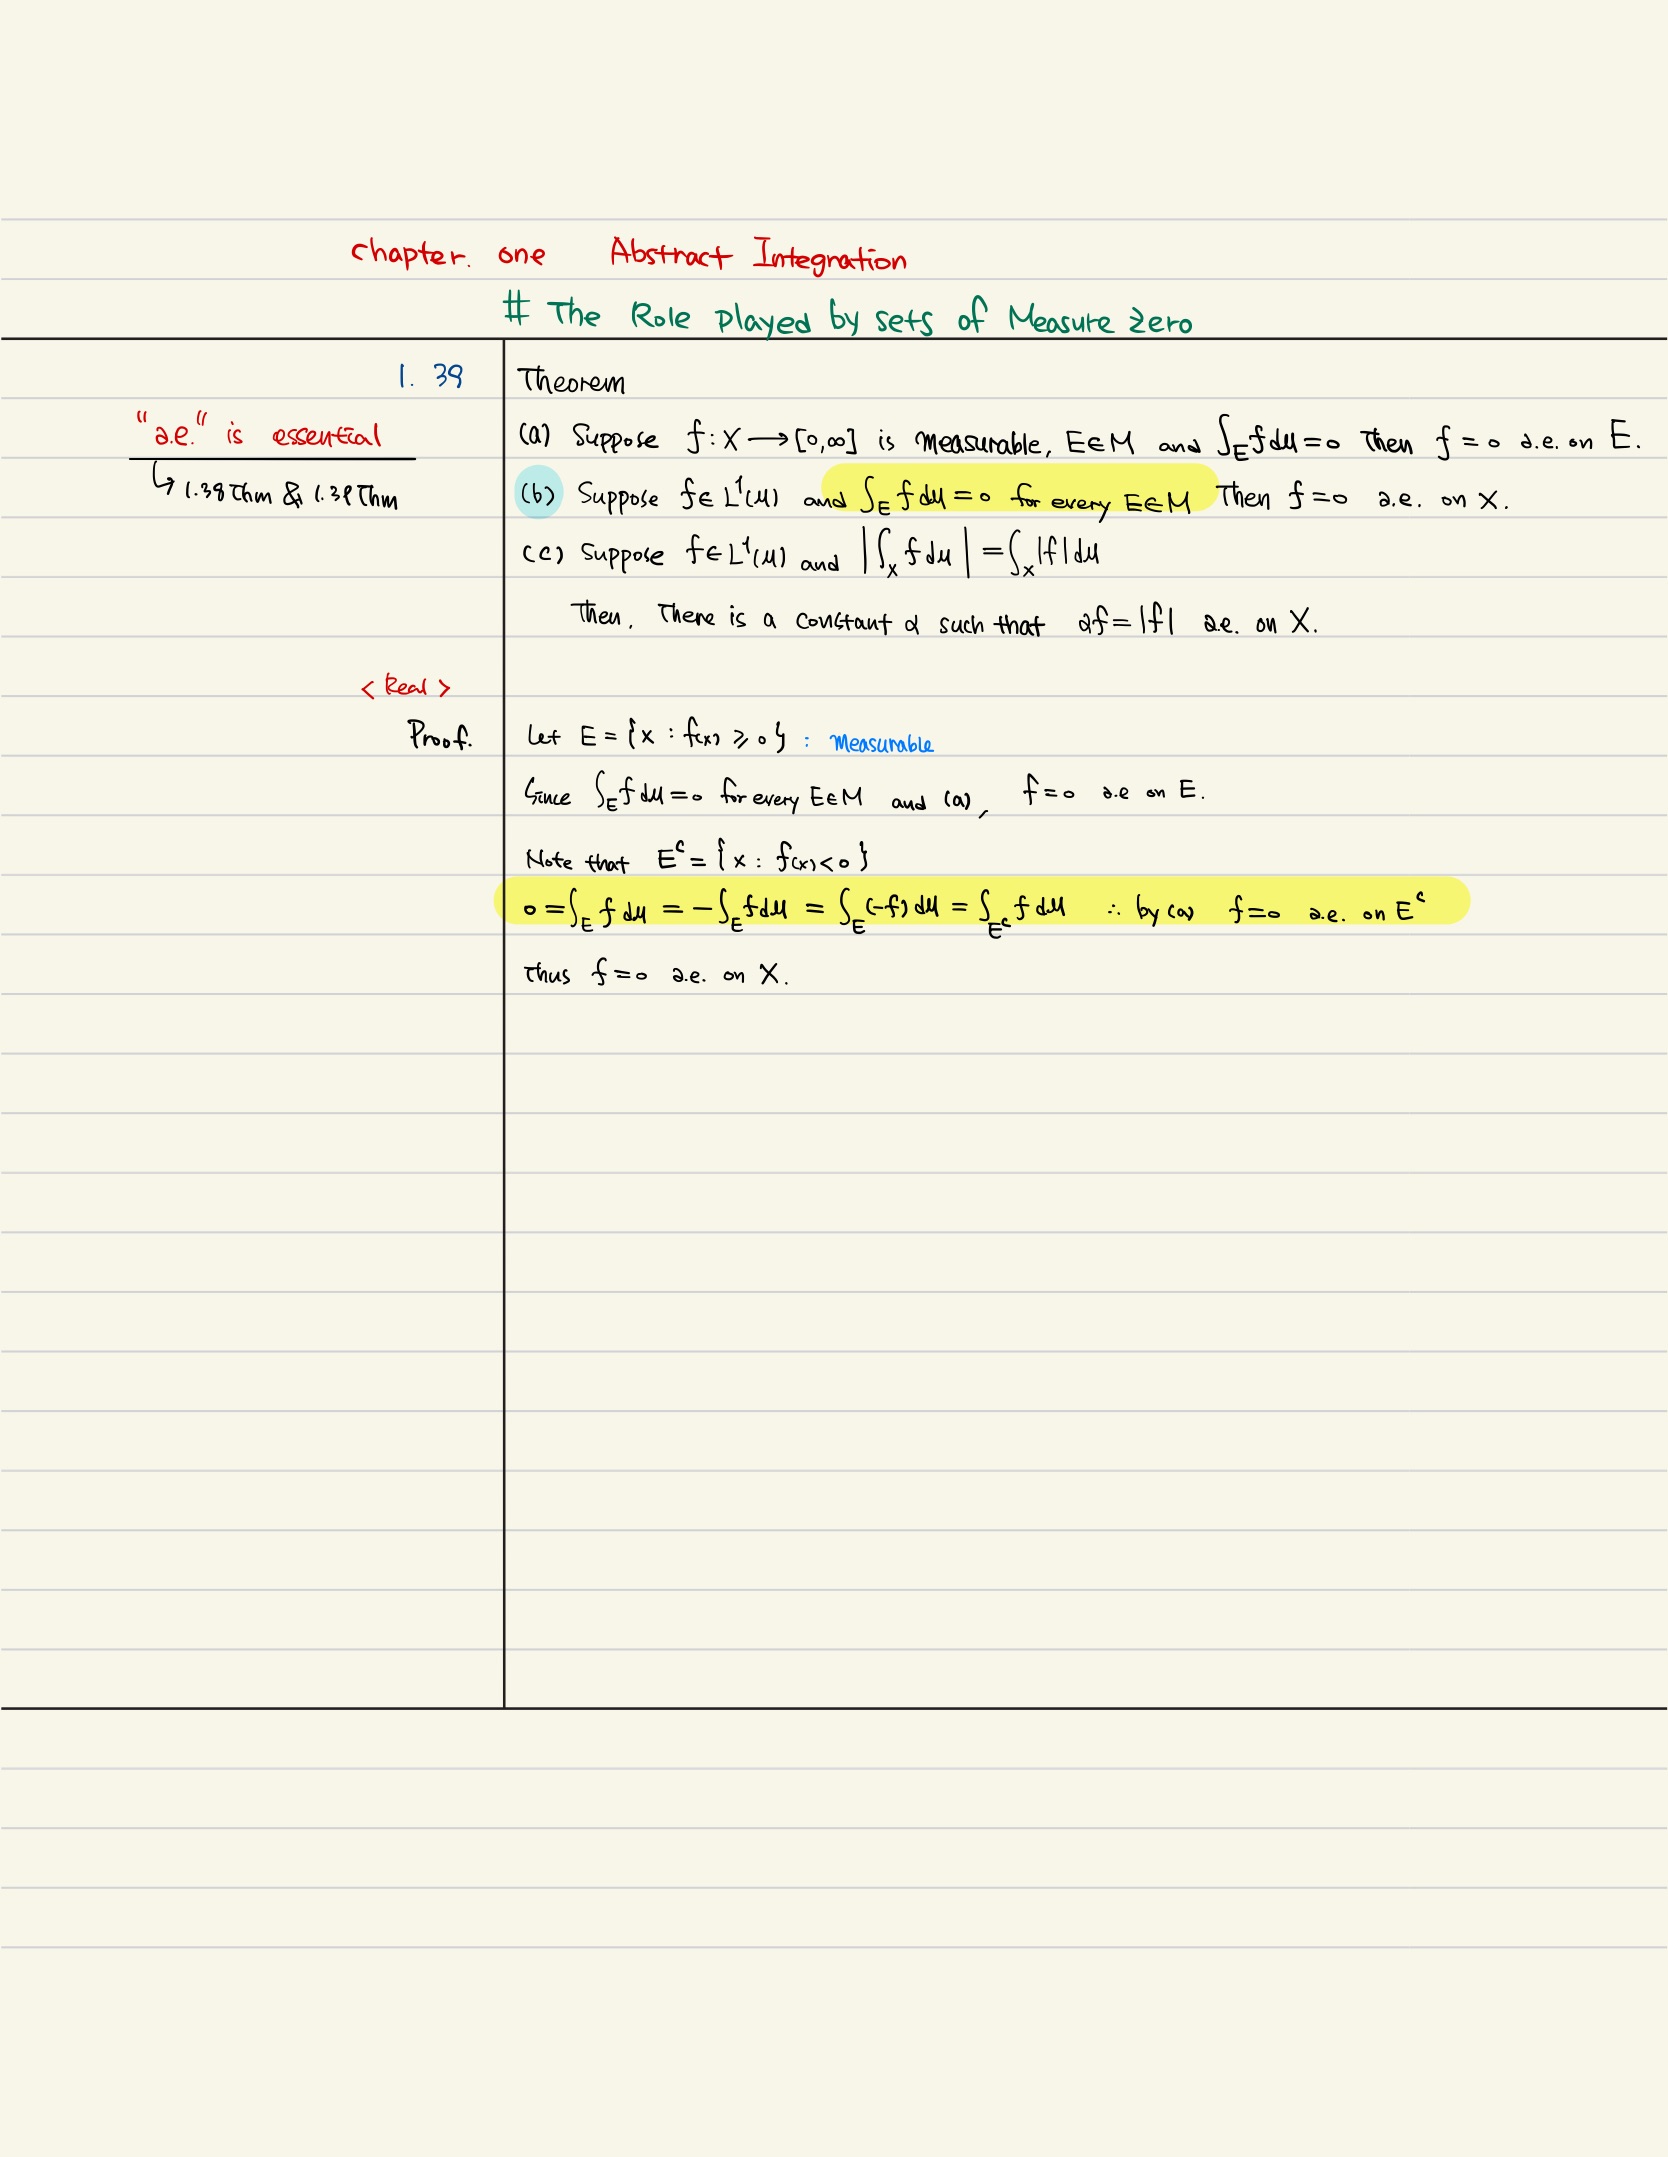 Chapter. one Abstract Integration
# The Role played by sets of Measure zero
1. 39
Theorem
"a.e." is essential
(a) Suppose f : X → [0,∞] is measurable, E∈M and ∫_E f dμ = 0 Then f = 0 a.e. on E.
↳ 1.38 Thm & 1.39 Thm
(b) Suppose f ∈ L¹(μ) and ∫_E f dμ = 0 for every E∈M Then f = 0 a.e. on X.
(c) Suppose f ∈ L¹(μ) and |∫_X f dμ| = ∫_X |f| dμ
Then, There is a constant α such that αf = |f| a.e. on X.
< Real >
Proof.
Let E = {x : f(x) ⩾ 0} : Measurable
Since ∫_E f dμ = 0 for every E∈M and (a), f = 0 a.e on E.
Note that Eᶜ = {x : f(x) < 0}
0 = ∫_E f dμ = -∫_E f dμ = ∫_E (-f) dμ = ∫_Eᶜ f dμ ∴ by (a) f = 0 a.e. on Eᶜ
Thus f = 0 a.e. on X.